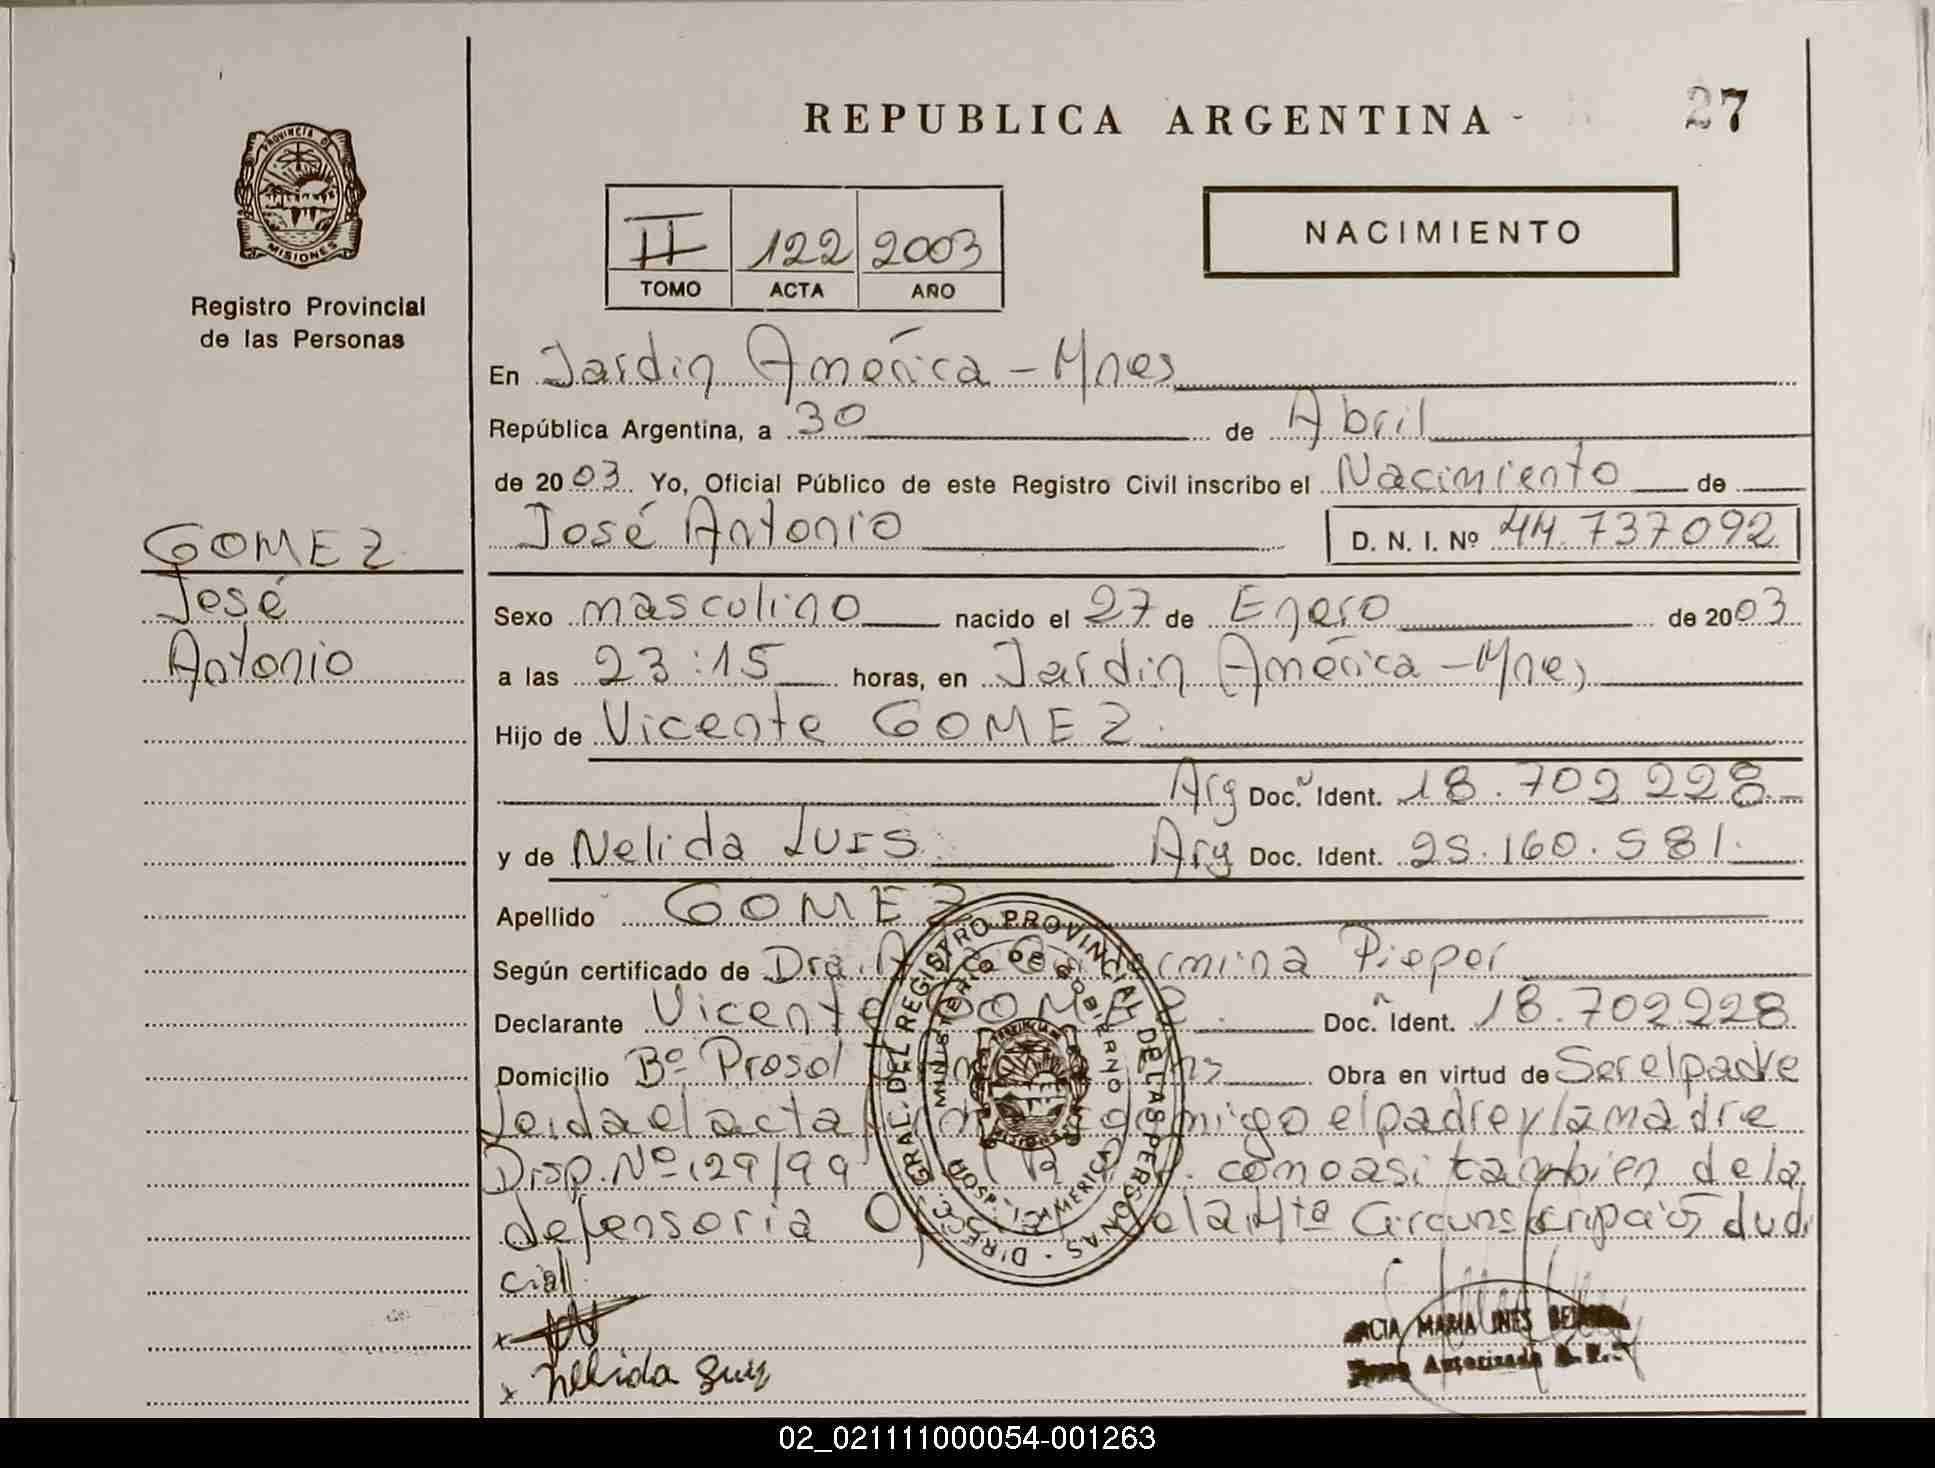 REPUBLICA ARGENTINA
27
PROVINCIA DE
MISIONES
Registro Provincial
de las Personas
II 122 2003
TOMO ACTA AÑO
NACIMIENTO
En Jardin América - Mnes
República Argentina, a 30 de Abril
de 2003 Yo, Oficial Público de este Registro Civil inscribo el Nacimiento de
José Antonio D. N. I. Nº 44.737092
GOMEZ
José
Antonio
Sexo masculino nacido el 27 de Enero de 2003
a las 23:15 horas, en Jardin América - Mnes
Hijo de Vicente GOMEZ
Arg Doc. Ident. 18.702228
y de Nelida Arg Doc. Ident. 25.160.581.
Apellido GOMEZ
Según certificado de Dra. Pieper
Declarante Vicente GOMEZ Doc. Ident. 18.702228
Domicilio Bº Prosol Obra en virtud de Ser el padre
Leida el acta el padre y la madre
Disp. Nº 129/99 como asi tambien de la
defensoria de la 4ta Circunscripció Judi
cial
DIREC. GRAL. DEL REGISTRO PROVINCIAL DE LAS PERSONAS
MINISTERIO DE GOBIERNO
HOSP. J. AMERICA
Nelida
MARIA INES
Autorizada
02_021111000054-001263